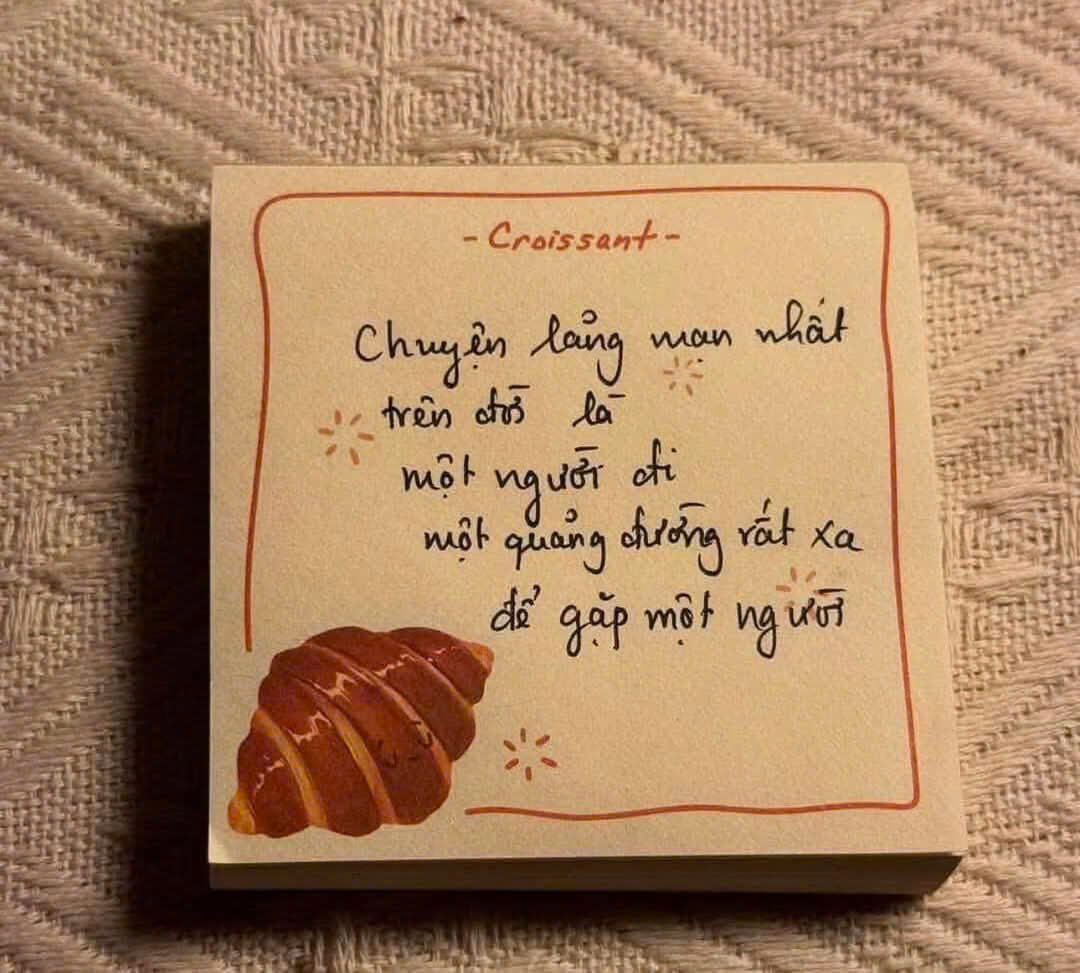 - Croissant -
Chuyện lảng mạn nhất
trên đời là
một người đi
một quảng đường rất xa
để gặp một người